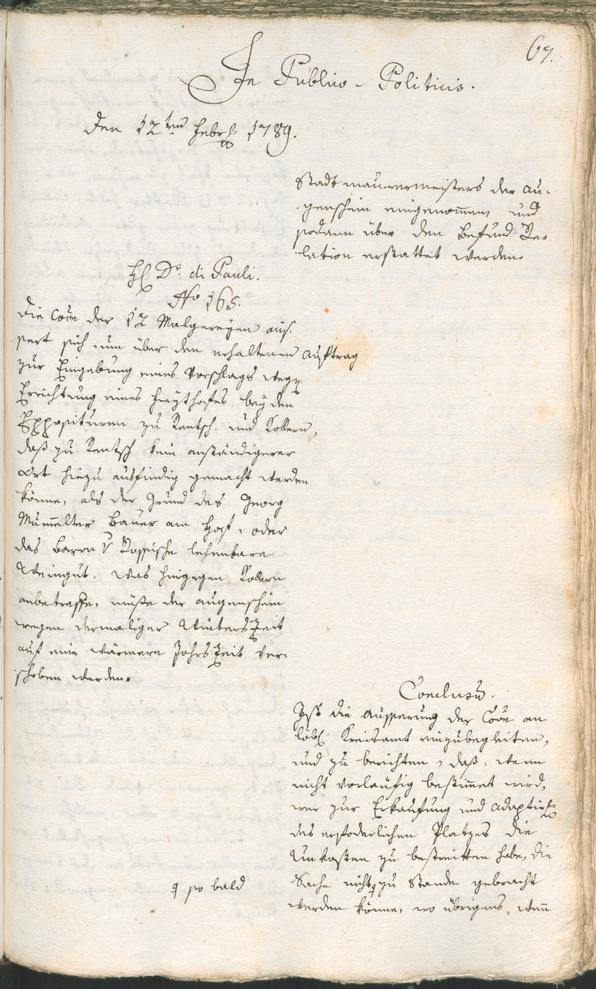 67.
In Publico-Politicis.
Den 12ten Febr. 1789.
Stadtmaurermeisters der Au-
genschein eingenommen, und
sodann über den Befund Re-
lation erstattet werden.
H. Dr. di Pauli.
No 168.
Die Coôn der 12 Malgereyen äus-
sert sich nun über den erhaltenen Auftrag
zur Eingebung eines Vorschlags wegen
Errichtung eines Freythofes bey den
Exposituren zu Rentsch, und Kobern,
daß zu Rentsch kein anständigerer
Ort hiezu ausfindig gemacht werden
könne, als der Grund des Georg
Mumelter Bauer am Hof, oder
das Baron v Rossische lehenbare
Weingut. Was hingegen Kobern
anbetreffe, müße der Augenschein
wegen dermaliger WintersZeit
auf eine wärmere JahrsZeit ver-
schoben werden.
Conclusum.
Ist die Aüsserung der Coôn an
löbl. Kreisamt einzubegleiten,
und zu berichten, daß, wenn
nicht vorläufig bestimet wird,
wer zur Erkaufung und Adaptirg
des erfoderlichen Platzes die
Unkosten zu bestreitten habe, die
Sache nicht zu Stande gebracht
werden könne, wo übrigens, weñ
so bald